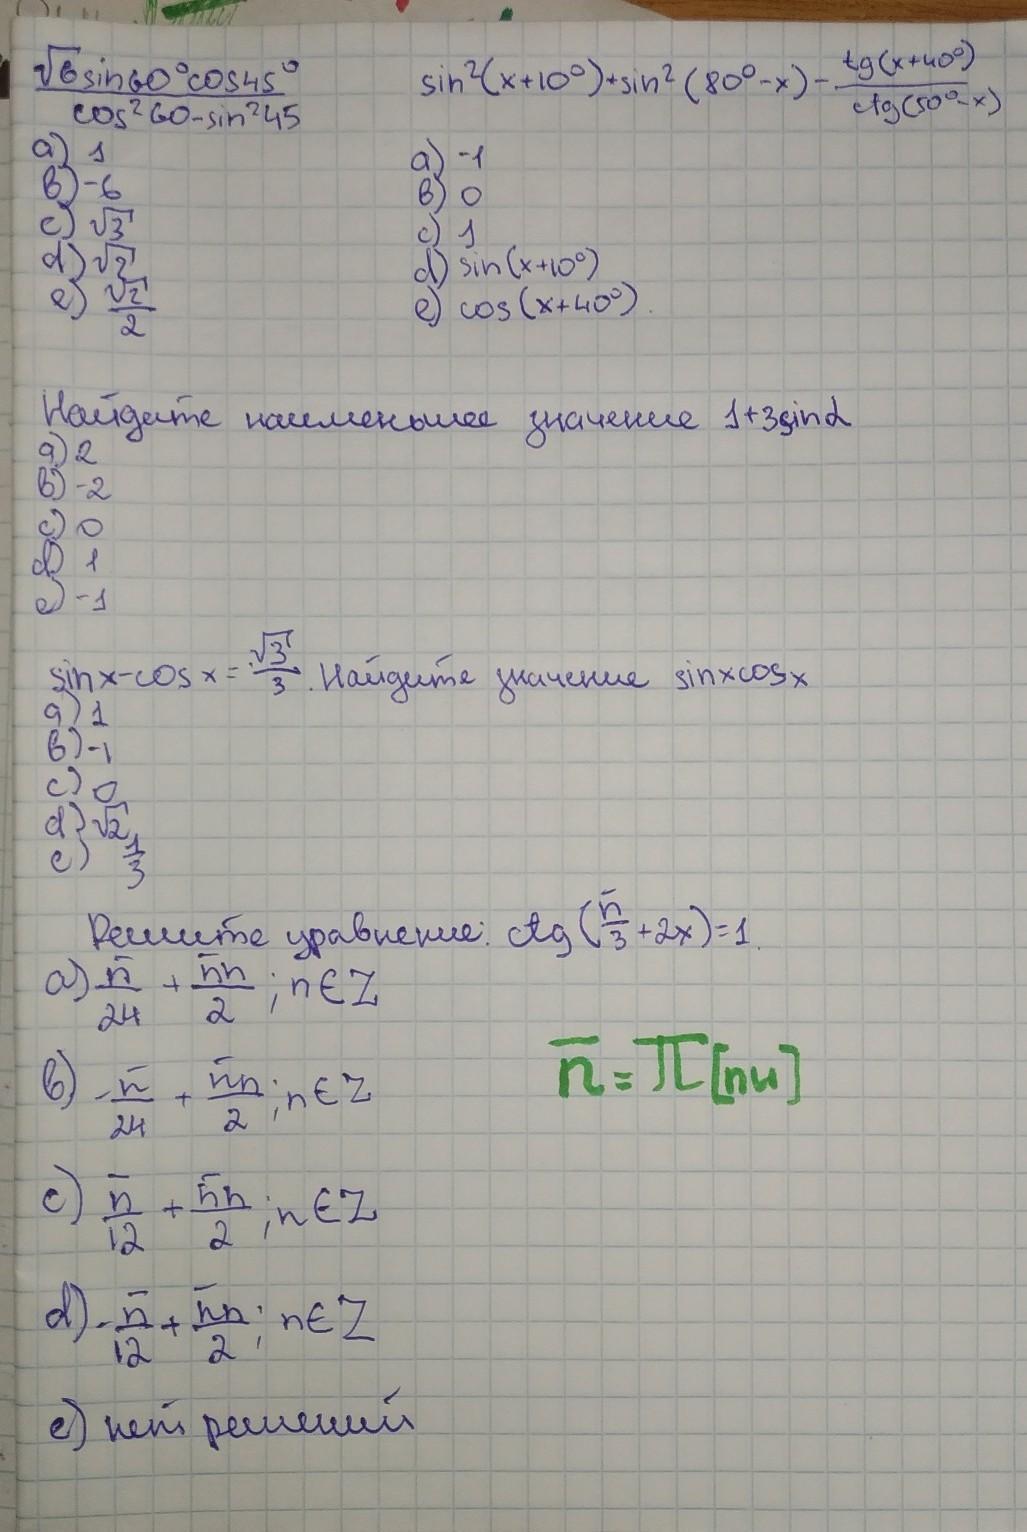 √6 sin60°cos45° / cos²60-sin²45
a) 1
b) -6
c) √3
d) √2
e) √2/2
sin²(x+10°)+sin²(80°-x) - tg(x+40°)/ctg(50°-x)
a) -1
b) 0
c) 1
d) sin(x+10°)
e) cos(x+40°).
Найдите наименьшее значение 1+3sinα
a) 2
b) -2
c) 0
d) 1
e) -1
sinx-cosx=√3/3. Найдите значение sinxcosx
a) 1
b) -1
c) 0
d) √2
e) 1/3
Решите уравнение: ctg(n̄/3+2x)=1.
a) n̄/24 + n̄n/2; n∈Z
b) -n̄/24 + n̄n/2; n∈Z
n̄=π[пи]
c) n̄/12 + n̄n/2; n∈Z
d) -n̄/12 + n̄n/2; n∈Z
e) нет решений